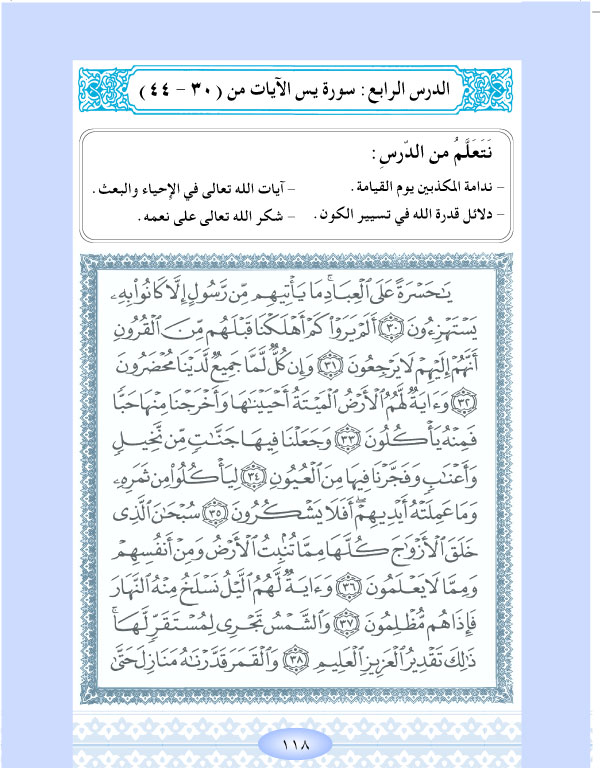 الدرس الرابع : سورة يس الآيات من ( ٣٠ - ٤٤ )
نَتَعَلَّمُ من الدّرسِ :
- ندامة المكذبين يوم القيامة.
- آيات الله تعالى في الإحياء والبعث .
- دلائل قدرة الله في تسيير الكون .
- شكر الله تعالى على نعمه .
يَٰحَسْرَةً عَلَى ٱلْعِبَادِ ۚ مَا يَأْتِيهِم مِّن رَّسُولٍ إِلَّا كَانُوا۟ بِهِۦ
يَسْتَهْزِءُونَ ٣٠ أَلَمْ يَرَوْا۟ كَمْ أَهْلَكْنَا قَبْلَهُم مِّنَ ٱلْقُرُونِ
أَنَّهُمْ إِلَيْهِمْ لَا يَرْجِعُونَ ٣١ وَإِن كُلٌّ لَّمَّا جَمِيعٌ لَّدَيْنَا مُحْضَرُونَ
٣٢ وَءَايَةٌ لَّهُمُ ٱلْأَرْضُ ٱلْمَيْتَةُ أَحْيَيْنَٰهَا وَأَخْرَجْنَا مِنْهَا حَبًّا
فَمِنْهُ يَأْكُلُونَ ٣٣ وَجَعَلْنَا فِيهَا جَنَّٰتٍ مِّن نَّخِيلٍ
وَأَعْنَٰبٍ وَفَجَّرْنَا فِيهَا مِنَ ٱلْعُيُونِ ٣٤ لِيَأْكُلُوا۟ مِن ثَمَرِهِۦ
وَمَا عَمِلَتْهُ أَيْدِيهِمْ ۖ أَفَلَا يَشْكُرُونَ ٣٥ سُبْحَٰنَ ٱلَّذِى
خَلَقَ ٱلْأَزْوَٰجَ كُلَّهَا مِمَّا تُنۢبِتُ ٱلْأَرْضُ وَمِنْ أَنفُسِهِمْ
وَمِمَّا لَا يَعْلَمُونَ ٣٦ وَءَايَةٌ لَّهُمُ ٱلَّيْلُ نَسْلَخُ مِنْهُ ٱلنَّهَارَ
فَإِذَا هُم مُّظْلِمُونَ ٣٧ وَٱلشَّمْسُ تَجْرِى لِمُسْتَقَرٍّ لَّهَا ۚ
ذَٰلِكَ تَقْدِيرُ ٱلْعَزِيزِ ٱلْعَلِيمِ ٣٨ وَٱلْقَمَرَ قَدَّرْنَٰهُ مَنَازِلَ حَتَّىٰ
١١٨